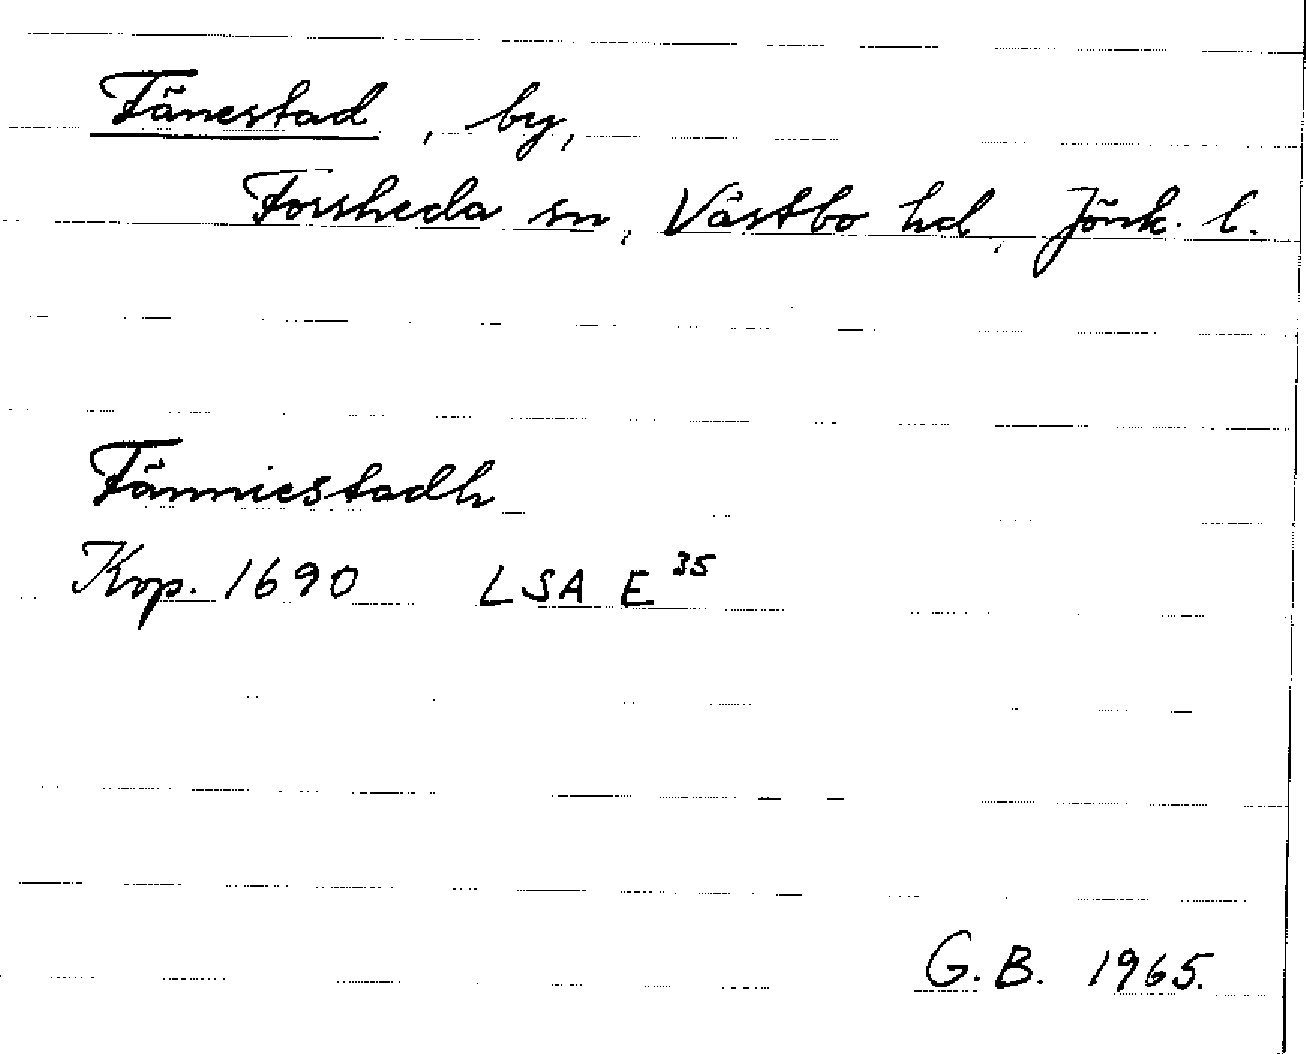 Fänestad, by,
Forsheda sn, Västbo hd, Jönk. l.
Fänniestadh
Kop. 1690 LSA E 35
G.B. 1965.